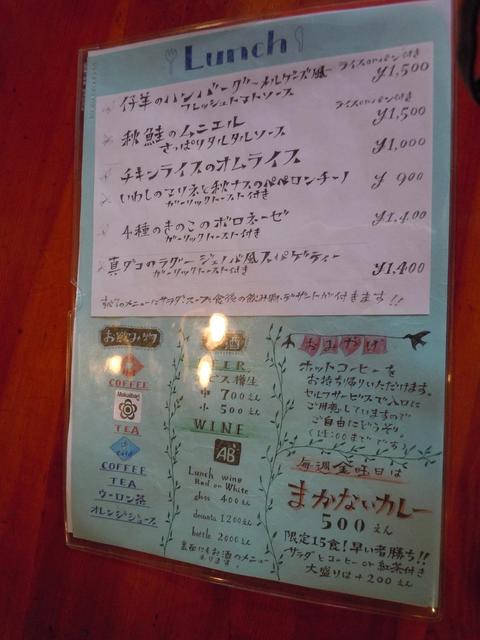 Lunch
仔羊のハンバーグ メルゲンズ風
フレッシュトマトソース
ライスorパン付き
¥1,500
秋鮭のムニエル
さっぱりタルタルソース
ライスorパン付き
¥1,500
チキンライスのオムライス
¥1,000
いわしのマリネと秋ナスのペペロンチーノ
ガーリックトースト付き
¥900
4種のきのこのボロネーゼ
ガーリックトースト付き
¥1,400
真ダコのラグー ジェノバ風スパゲティー
ガーリックトースト付き
¥1,400
すべてのメニューにサラダ、スープ、食後の飲み物、デザートが付きます!!
お飲みもの
COFFEE
TEA
COFFEE
TEA
ウーロン茶
オレンジジュース
酒
中 700えん
小 500えん
WINE
AB
Lunch wine
Red or White
glass 400えん
decanta 1200えん
bottle 2000えん
裏面にもお酒のメニュー
あります。
おみやげ
ホットコーヒーを
お持ち帰りいただけます。
セルフサービスで入口に
ご用意していますので
ご自由にどうぞ。
毎週金曜日は
まかないカレー
500えん
限定15食!早い者勝ち!!
サラダとコーヒーor紅茶付き
大盛りは+200えん